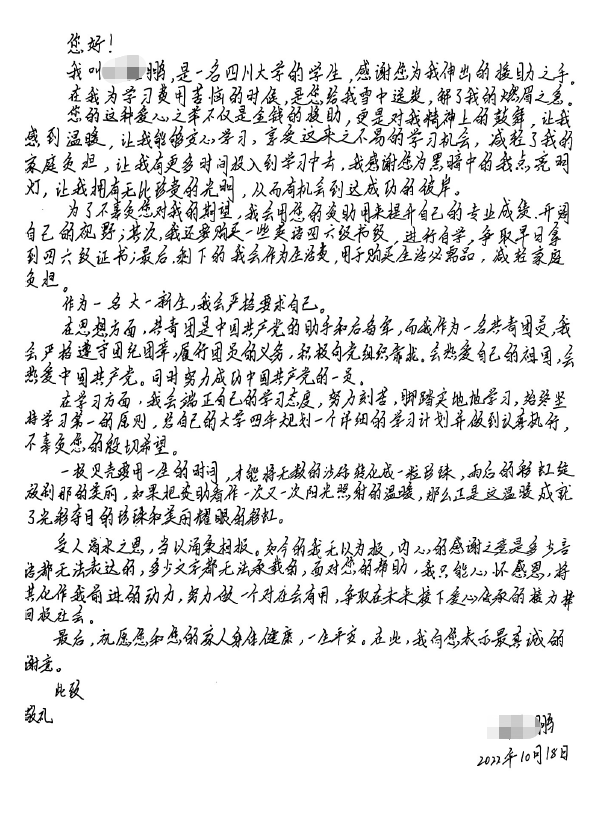 您好！
我叫鹏，是一名四川大学的学生，感谢您为我伸出的援助之手。
在我为学习费用苦恼的时候，是您给我雪中送炭，解了我的燃眉之急。
您的这种爱心之举不仅是金钱的援助，更是对我精神上的鼓舞，让我
感到温暖，让我能够安心学习，享受这来之不易的学习机会，减轻了我的
家庭负担，让我有更多时间投入到学习中去，我感谢您为黑暗中的我点亮明
灯，让我拥有无比珍贵的光明，从而有机会到达成功的彼岸。
为了不辜负您对我的期望，我会用您的资助用来提升自己的专业成绩，开阔
自己的视野；其次，我还要购买一些英语四六级书级，进行自学，争取早日拿
到四六级证书；最后，剩下的我会作为生活费，用于购买生活必需品，减轻家庭
负担。
作为一名大一新生，我会严格要求自己。
在思想方面，共青团是中国共产党的助手和后备军，而我作为一名共青团员，我
会严格遵守团纪团章，履行团员的义务，积极向党组织靠拢。会热爱自己的祖国，会
热爱中国共产党。同时努力成功中国共产党的一员。
在学习方面，我会端正自己的学习态度，努力刻苦，脚踏实地地学习，始终坚
持学习第一的原则，给自己的大学四年规划一个详细的学习计划并做到认真执行，
不辜负您的殷切希望。
一枚贝壳要用一生的时间，才能将无数的沙砾转化成一粒珍珠，雨后的彩虹绽
放刹那的美丽，如果把资助看作一次又一次阳光照射的温暖，那么正是这温暖成就
了光彩夺目的珍珠和美丽耀眼的彩虹。
受人滴水之恩，当以涌泉相报。如今的我无以为报，内心的感谢之意是多少言
语都无法表达的，多少文字都无法承载的，面对您的帮助，我只能心怀感恩，将
其化作我前进的动力，努力做一个对社会有用，争取在未来接下爱心传承的接力棒
回报社会。
最后，祝愿您和您的家人身体健康，一生平安。在此，我向您表示最真诚的
谢意。
此致
敬礼
鹏
2022年10月18日